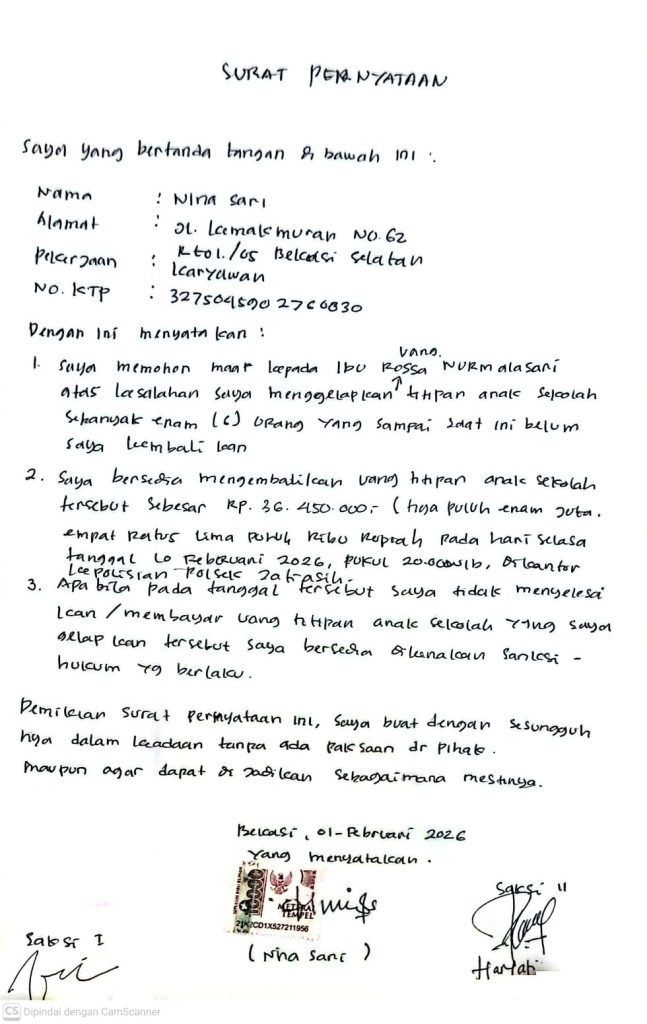 SURAT PERNYATAAN
Saya yang bertanda tangan di bawah ini :
Nama : Nina Sari
Alamat : Jl. Kemakmuran No. 62
Rt01./05 Bekasi Selatan
Pekerjaan : Karyawan
No. KTP : 3275045902760030
Dengan ini menyatakan :
1. Saya memohon maaf kepada Ibu Rossa Nurmalasari
uang.
atas kesalahan saya menggelapkan titipan anak sekolah
sebanyak enam (6) orang yang sampai saat ini belum
saya kembali kan
2. Saya bersedia mengembalikan uang titipan anak sekolah
tersebut sebesar Rp. 36.450.000,- (tiga puluh enam juta.
empat ratus lima puluh ribu rupiah pada hari selasa
tanggal 10 Februari 2026, pukul 20.00 wib, di kantor
kepolisian Polsek Jatiasih.
3. Apabila pada tanggal tersebut saya tidak menyelesai
kan / membayar uang titipan anak sekolah yang saya
gelap kan tersebut saya bersedia dikenakan sanksi -
hukum yg berlaku.
Demikian surat pernyataan ini, saya buat dengan sesungguh
nya dalam keadaan tanpa ada paksaan dr pihak.
maupun agar dapat di jadikan sebagaimana mestinya.
Bekasi, 01-Februari 2026
Yang menyatakan.
10000
METERAI
TEMPEL
(Nina Sari)
Saksi I
Saksi II
Haryati
CS Dipindai dengan CamScanner